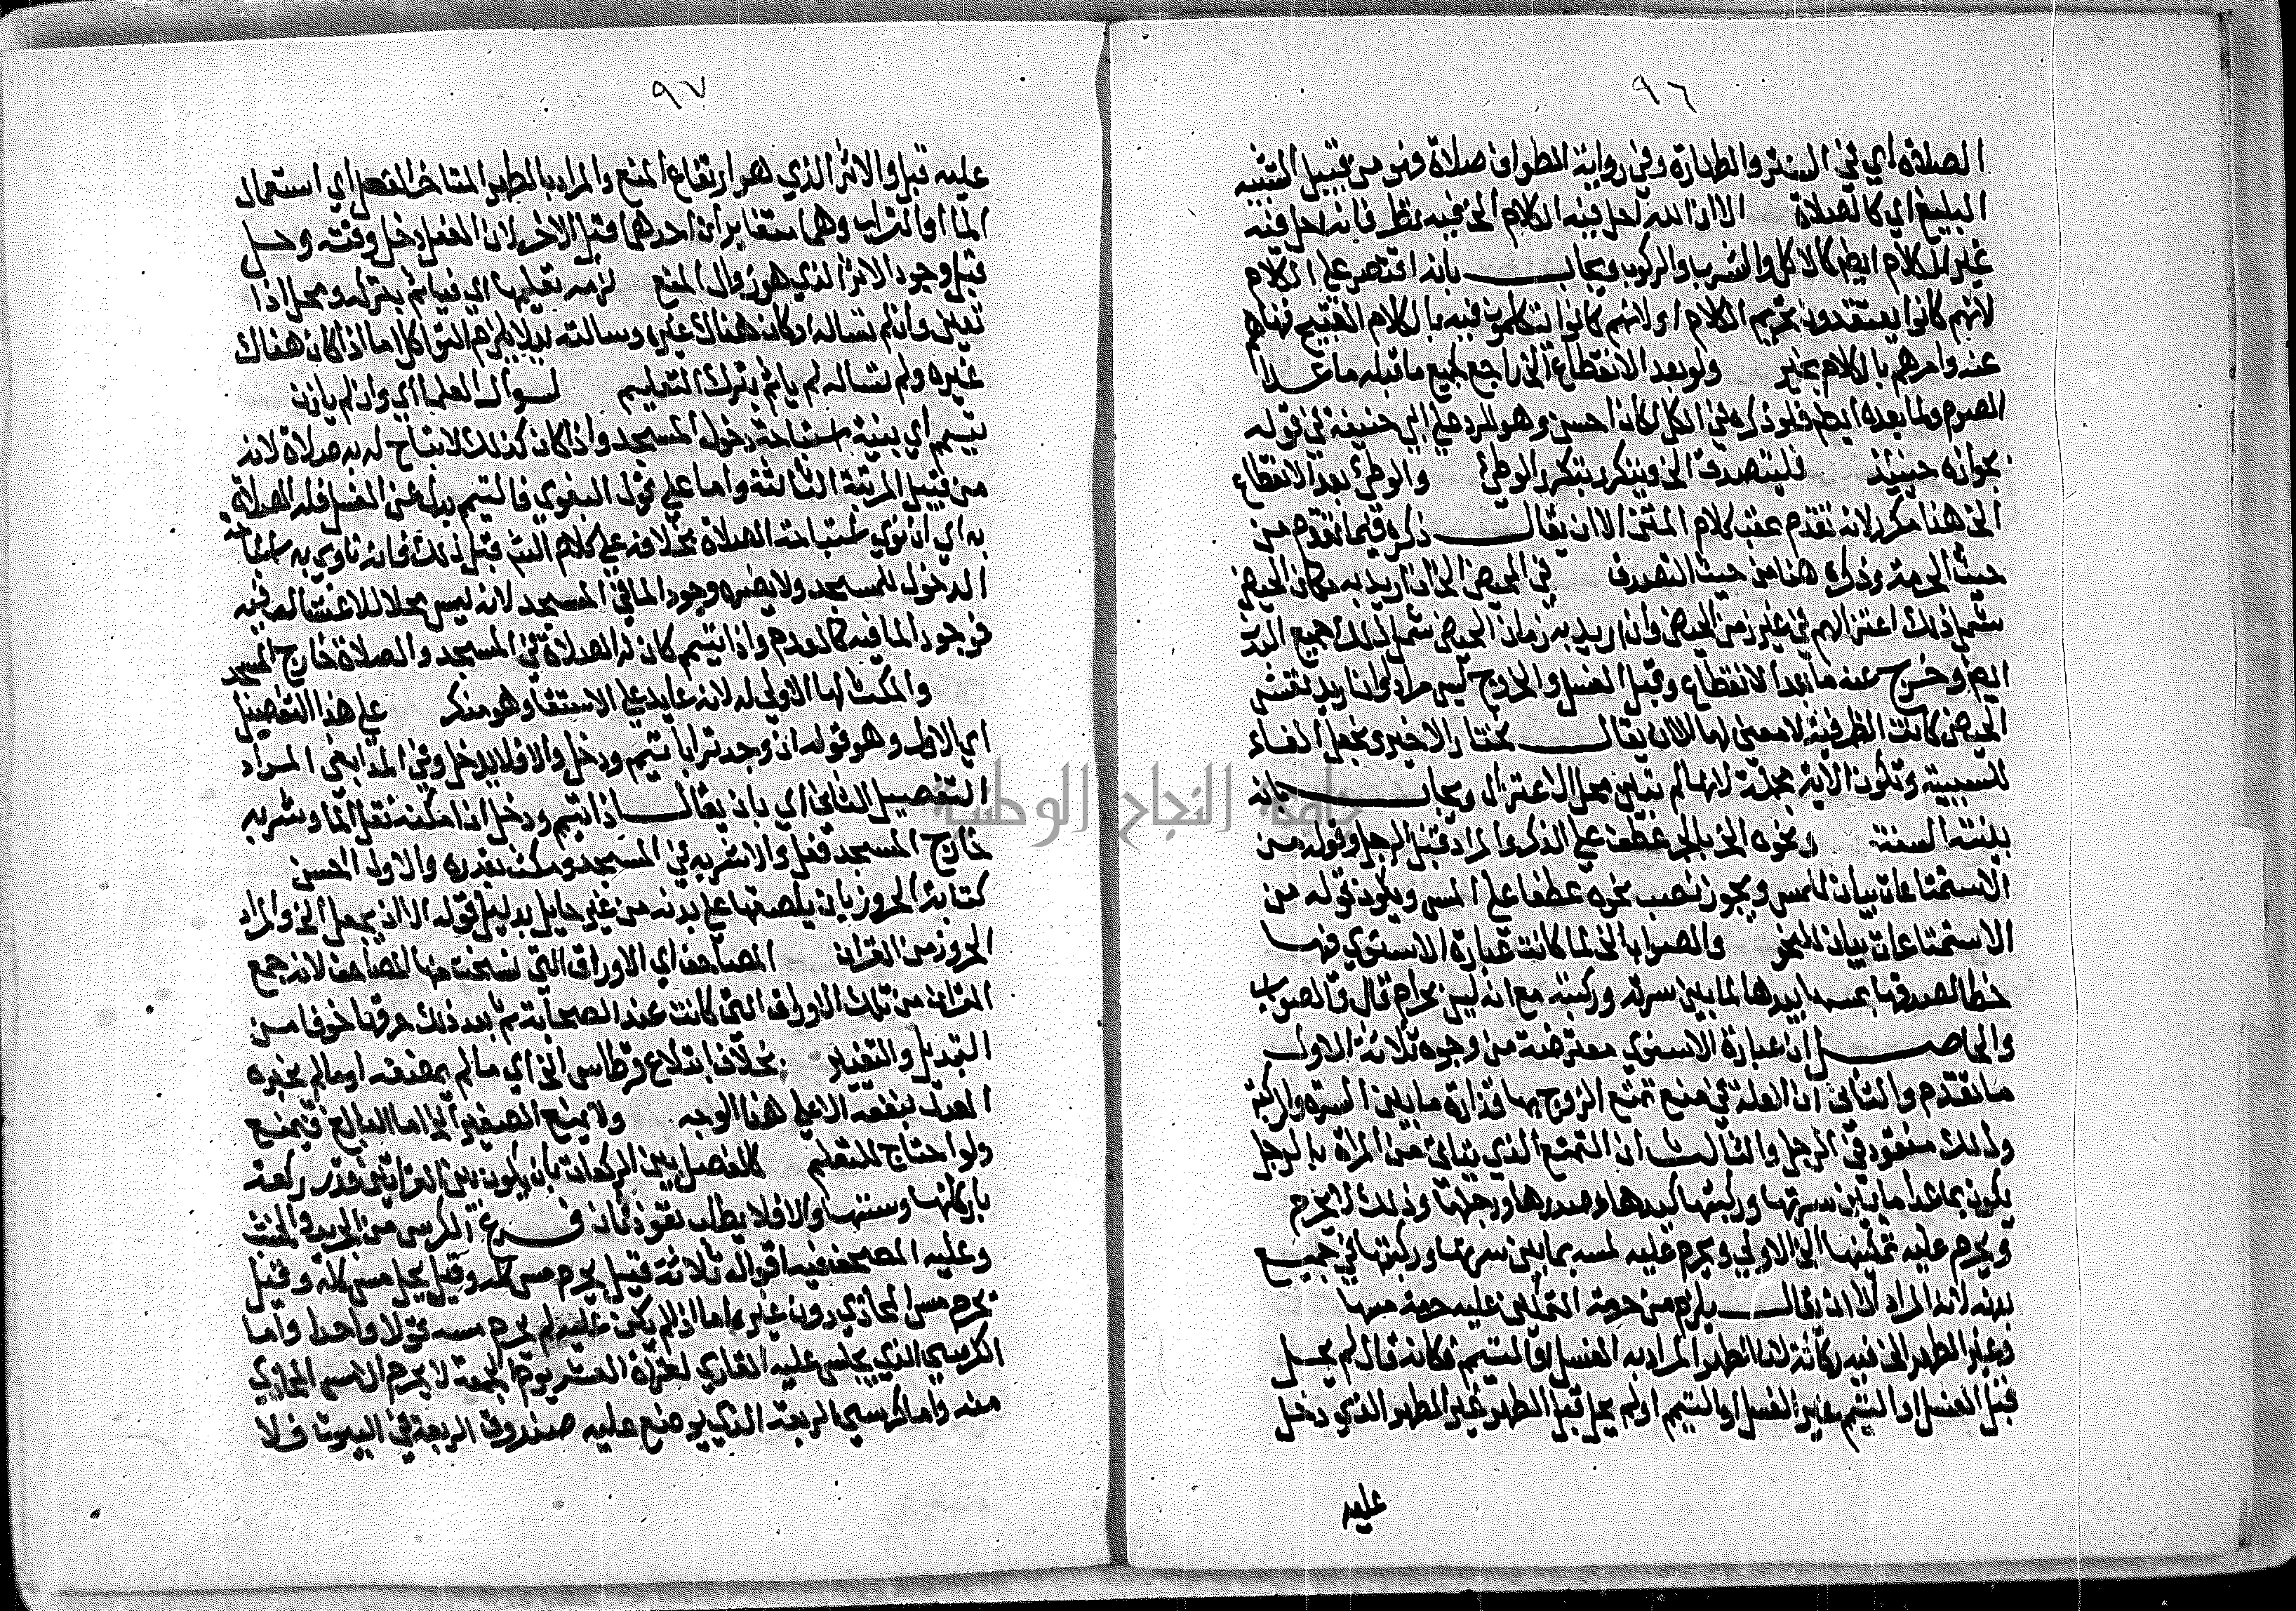 ٩٦
الصلاة اي في الستر والطهارة وفي رواية الطواف صلاة وهو من قبيل التشبيه
البليغ اي كالصلاة الا ان الله احل فيه الكلام الخ فيه نظر فانه احل فيه
غير الكلام ايضا كالاكل والشرب والركوب ويجاب بانه اقتصر على الكلام
لانهم كانوا يعتقدون تحريم الكلام او لانهم كانوا يتكلمون فيه بالكلام القبيح فنهاهم
عنه وامرهم بالكلام بخير ولو بعد الانقطاع الخ راجع لجميع ما قبله ما عدا
الصوم ولما بعده ايضا فلو ذكره في الكل لكان احسن وهو للرد على ابي حنيفة في قوله
بجوازه حينئذ فليتصدق الخ ويتكرر بتكرر الوطئ والوطئ بعد الانقطاع
الخ هنا مكرر لانه تقدم عقب كلام المتن الا ان يقال ذكره فيما تقدم من
حيث الحرمة وذكره هنا من حيث التصدق في المحيض الخ ان اريد به مكان الحيض
شمل ذلك اعتزالهم في غير زمن الحيض وان اريد به زمان الحيض شمل ذلك جميع البدن
ايضا وخرج عنه ما بعد الانقطاع وقبل الغسل والخروج ليس مرادا وان اريد نفس
الحيض كانت الظرفية لا معنى لها الا ان يقال نختار الاخير ونجعل الفاء
للسببية وتكون الاية مجملة لانها لم تبين محل الاعتزال ويجاب بانه
بينته السنة ونحوه الخ بالجر عطف على الذكر والمراد قبل الرجل وقوله من
الاستمتاعات بيان للمس ويجوز نصب نحوه عطفا على المس ويكون قوله من
الاستمتاعات بيان للنحو والصواب الخ لما كانت عبارة الاسنوي فيها
خطا لصدقها بمسها بيدها لما بين سرته وركبته مع انه ليس بحرام قال والصواب
والحاصل ان عبارة الاسنوي معترضة من وجوه ثلاثة الاول
ما تقدم والثاني ان العلة في منع تمتع الزوج بها قذارة ما بين السرة والركبة
وذلك مفقود في الرجل والثالث ان التمتع الذي يتاتى من المراة بالرجل
يكون بما عدا ما بين سرتها وركبتها كيدها وصدرها ورجلها وذلك لا يحرم
ويحرم عليه تمكينها الخ الاولى ويحرم عليه لمسه بما بين سرتها وركبتها في جميع
بدنه لانه المراد الا ان يقال يلزم من حرمة التمكين عليه حرمة مسها
وغير الطهر الخ فيه ركاكة لان الطهر المراد به الغسل او التيمم فكانه قال لم يحل
قبل الغسل او التيمم غير الغسل او التيمم او لم يحل قبل الطهر غير الطهر الذي دخل
عليه
٩٧
عليه قبل والاثر الذي هو ارتفاع المنع والمراد بالطهر المتاخر الفعل اي استعمال
الماء او التراب وهما متغايران احدهما قبل الاخر لان الفعل دخل وقته وحل
قبل وجود الاثر الذي هو زوال المنع لزمه تعليمها اي فياثم بتركه ومحل اذا
تعين وان لم تساله او كان هناك غيره وسالته لئلا يلزم التواكل اما اذا كان هناك
غيره ولم تساله لم ياثم بترك التعليم لسوال العلما اي وان لم ياذن
تيمم اي بنية استباحة دخول المسجد واذا كان كذلك لا يباح له به صلاة لانه
من قبيل المرتبة الثالثة واما على قول البغوي فالتيمم بدل عن الغسل فله الصلاة
به اي ان نوى استباحة الصلاة بخلافه على كلام المتن قبل ذلك فانه ناوي به استباحة
الدخول للمسجد ولا يضره وجود الما في المسجد لانه ليس محلا للاغتسال فيه
فوجود الما فيه كالعدم واذا تيمم كان له الصلاة في المسجد والصلاة خارج المسجد
والمكث لها الاولى له لانه عايد على الاستقا وهو مذكر على هذا التفصيل
اي الاول وهو قوله ان وجد ترابا تيمم ودخل والا فلا يدخل وفي المدابغي المراد
التفصيل الثاني اي بان يقال اذا تيمم ودخل ان امكنه نقل الما وشربه
خارج المسجد فعل والا شربه في المسجد ومكث بقدره والاول احسن
كتابة الحروز بان يلصقها على بدنه من غير حايل بدليل قوله الا ان يجعل الخ والمراد
الحروز من القران المصاحف اي الاوراق التي نسخت منها المصاحف لانه جمع
القران من تلك الاوراق التي كانت عند الصحابة ثم بعد ذلك حرقها خوفا من
التبديل والتغيير بخلاف ابتلاع قرطاس الخ اي ما لم يمضغه او ما لم يخبره
العدل بنفعه الا على هذا الوجه ولا يمنع الصغير الخ اما البالغ فيمنع
ولو احتاج للتعليم كالفصل بين الركعات بان يكون بين القراتين قدر ركعة
باركانها وسننها والا فلا يطلب تعوذ ثان فرع الكرسي من الجريد والخشب
وعليه المصحف فيه اقوال ثلاثة قيل يحرم مس كله وقيل يحل مس كله وقيل
يحرم مس المحاذي دون غيره اما اذا لم يكن عليه لم يحرم مسه قولا واحدا واما
الكرسي الذي يجلس عليه القاري لقراة العشر يوم الجمعة لا يحرم الا مس المحاذي
منه واما كرسي الربعة الذي يوضع عليه صندوق الربعة في البيوت فلا
جامعة النجاح الوطنية